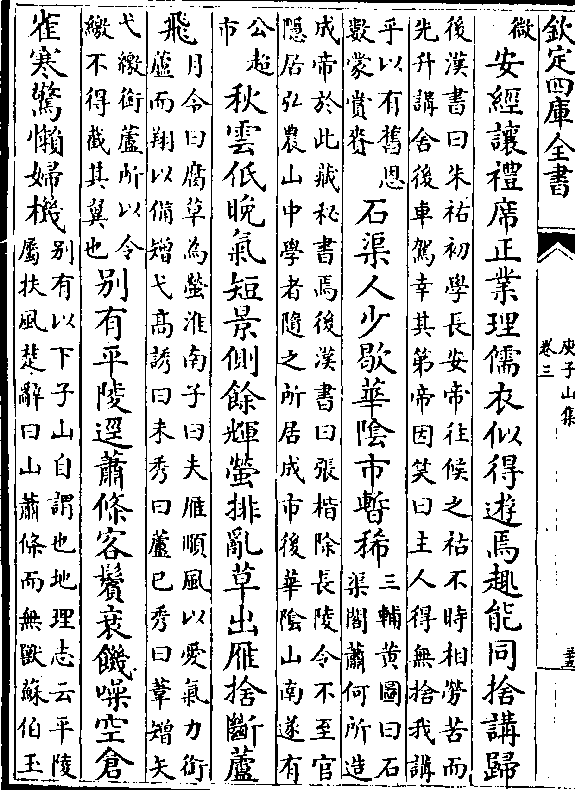 欽定四庫全書
庾子山集
卷三
微
安經讓禮席正業理儒衣似得遊焉趣能同捨講歸
後漢書曰朱祐初學長安帝往候之祐不時相勞苦而
先升講舍後車駕幸其第帝因笑曰主人得無捨我講
乎以有舊恩
數蒙賞賚
石渠人少歇華陰市暫稀
三輔黄圖曰石
渠閣蕭何所造
成帝於此藏秘書焉後漢書曰張楷除長陵令不至官
隱居弘農山中學者隨之所居成市後華陰山南遂有
公超
市
秋雲低晚氣短景側餘輝螢排亂草出雁捨斷蘆
飛
月令曰腐草為螢淮南子曰夫雁順風以愛氣力銜
蘆而翔以備矰弋高誘曰未秀曰蘆已秀曰葦矰矢
弋繳銜蘆所以令
繳不得截其翼也
别有平陵逕蕭條客鬢衰饑噪空倉
雀寒驚懶婦機
别有以下子山自謂也地理志云平陵
屬扶風楚辭曰山蕭條而無獸蘇伯玉